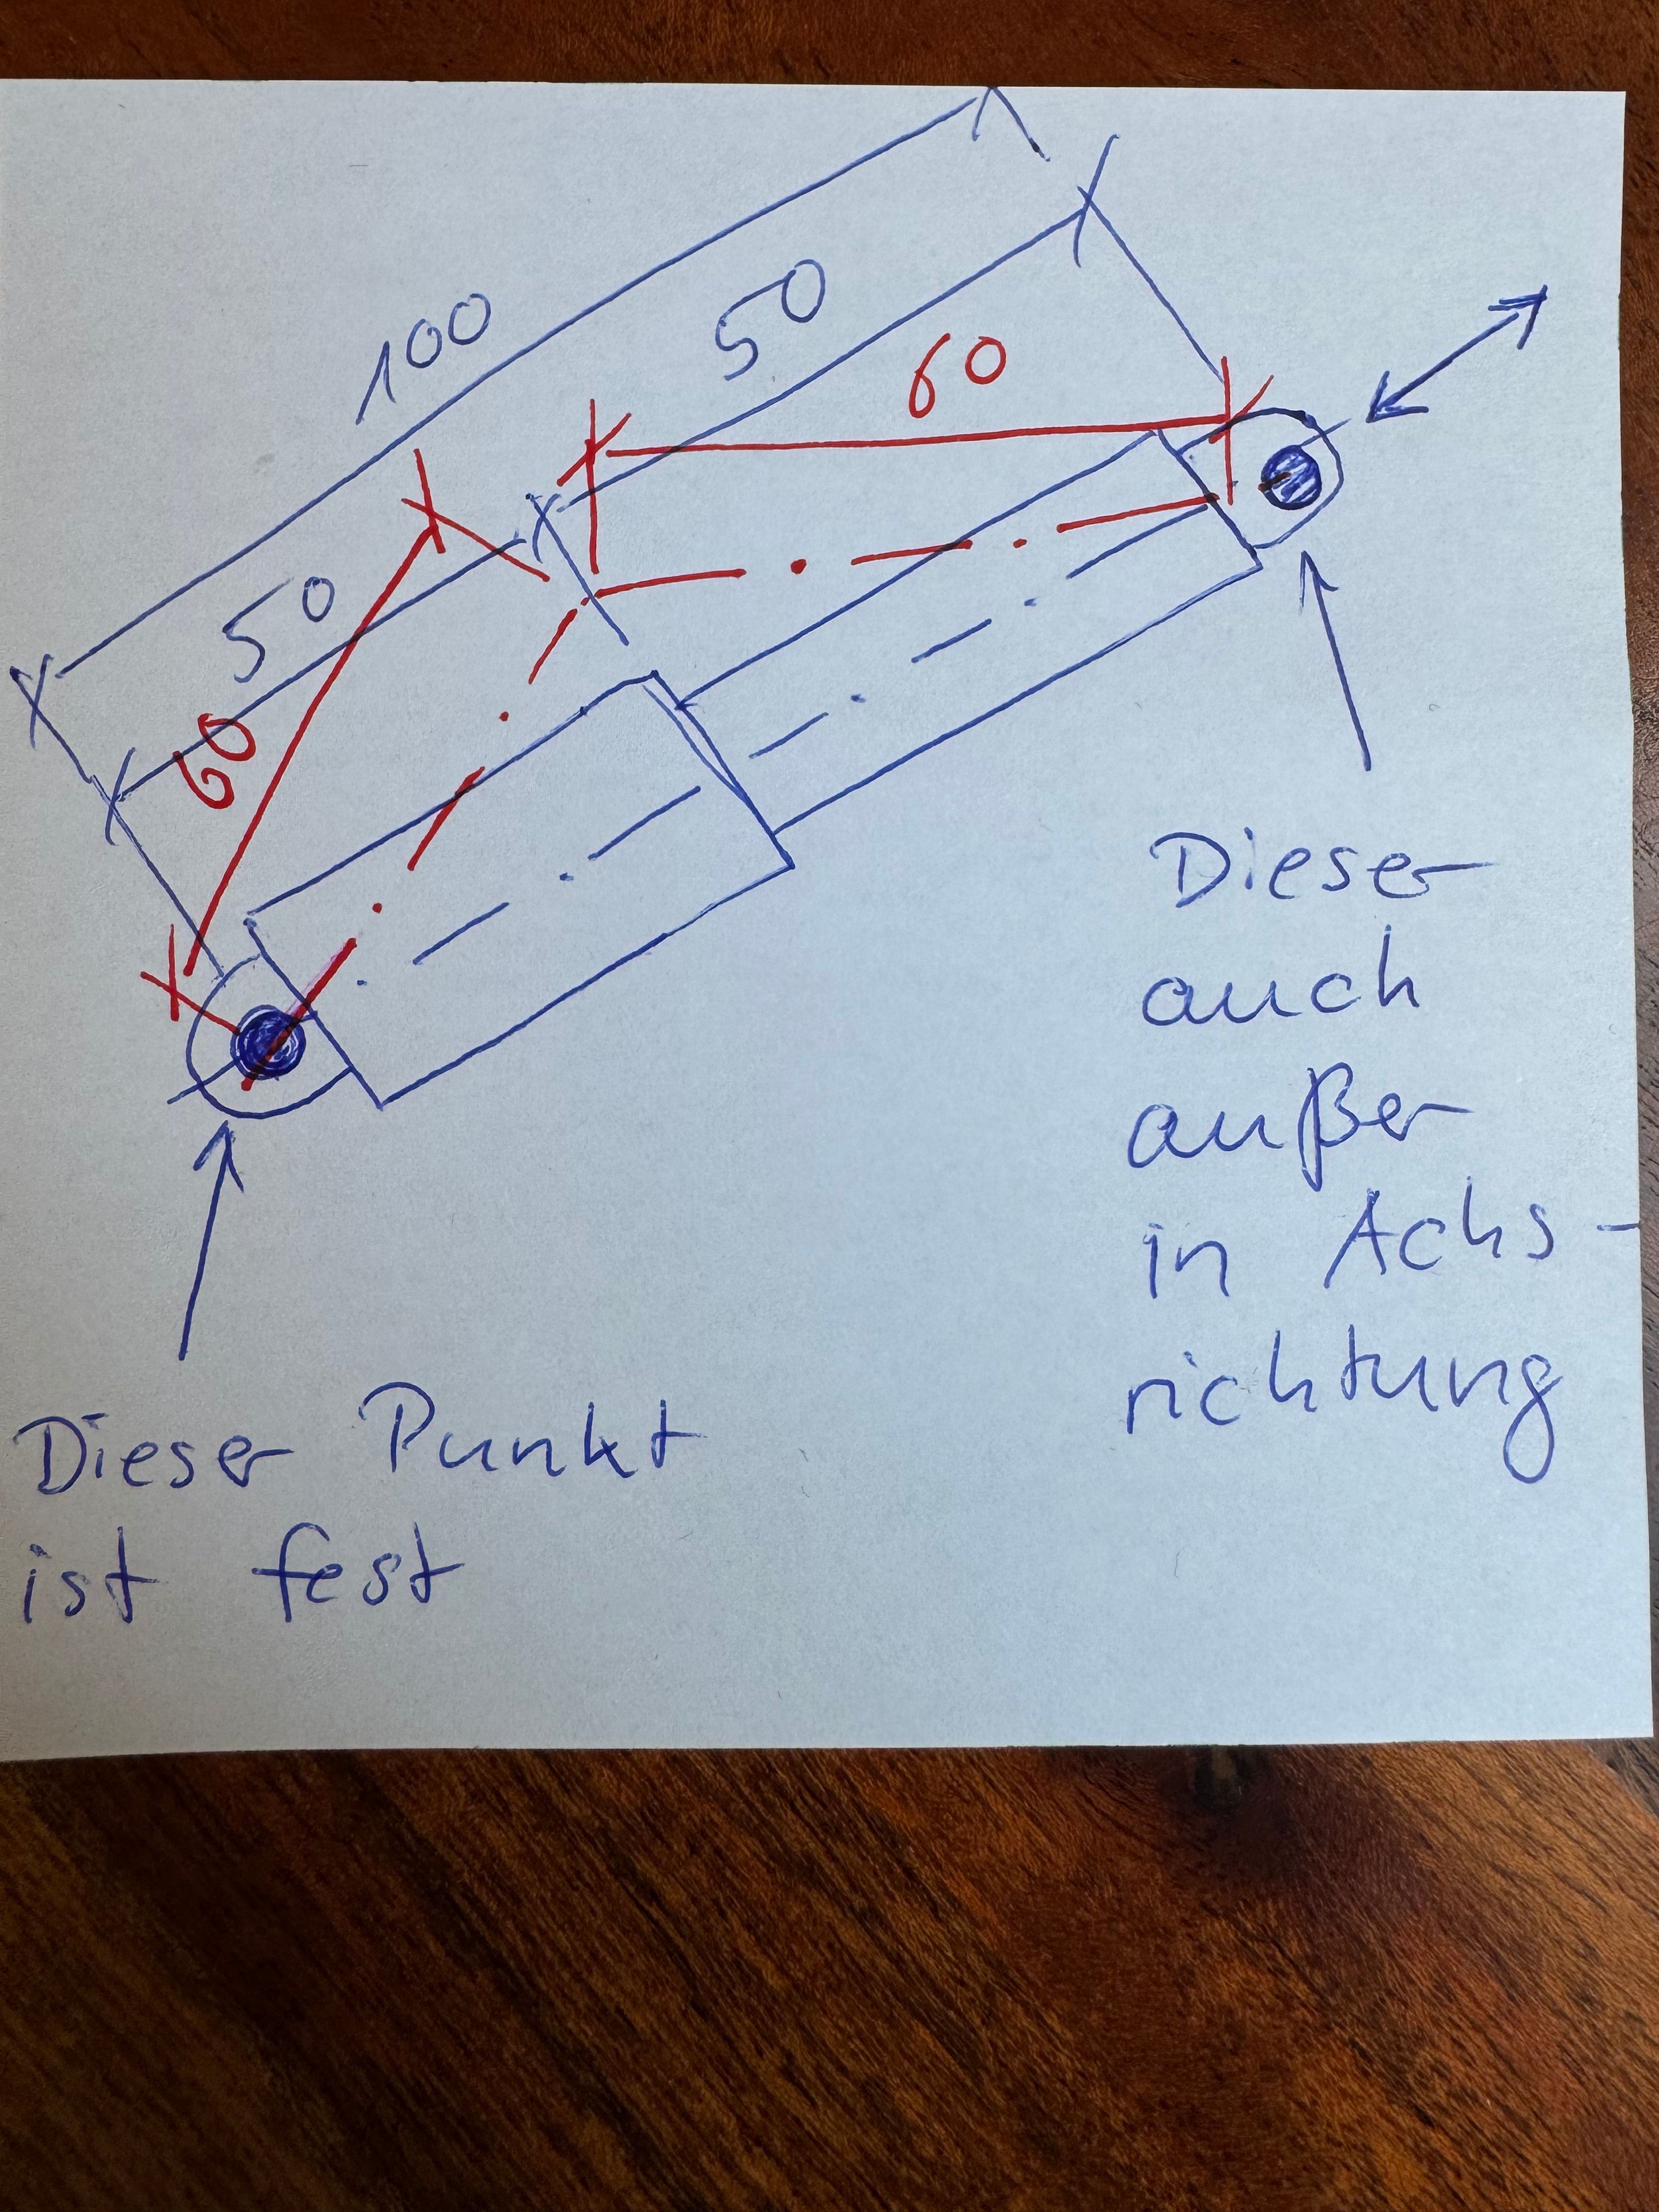 100
50
60
50
60
Dieser
auch
außer
in Achs-
richtung
Dieser Punkt
ist fest